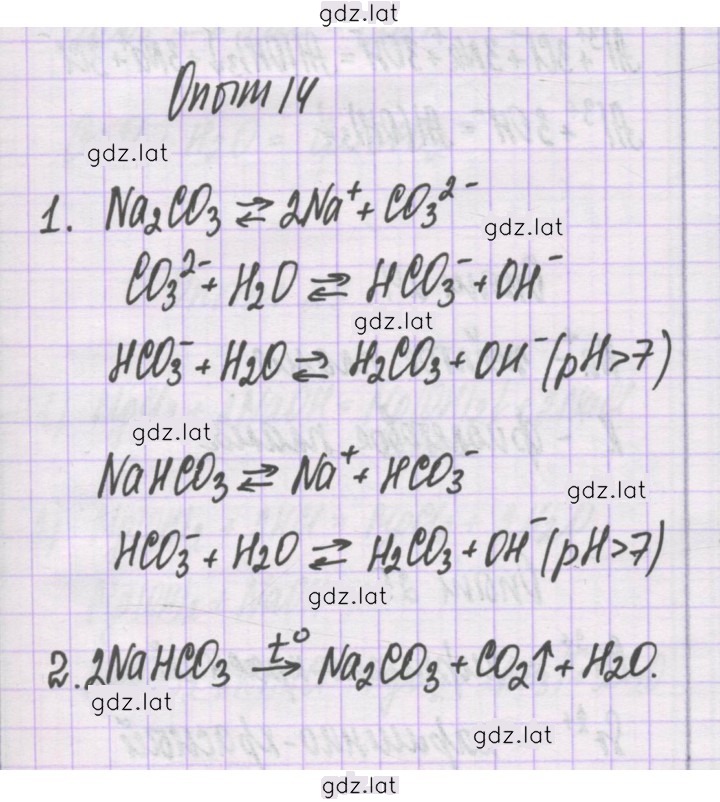 gdz.lat
Опыт 14
gdz.lat
1. Na₂CO₃ ⇄ 2Na⁺ + CO₃²⁻
gdz.lat
CO₃²⁻ + H₂O ⇄ HCO₃⁻ + OH⁻
gdz.lat
HCO₃⁻ + H₂O ⇄ H₂CO₃ + OH⁻ (pH>7)
gdz.lat
NaHCO₃ ⇄ Na⁺ + HCO₃⁻
gdz.lat
HCO₃⁻ + H₂O ⇄ H₂CO₃ + OH⁻ (pH>7)
gdz.lat
2. 2NaHCO₃ –t°→ Na₂CO₃ + CO₂↑ + H₂O.
gdz.lat
gdz.lat
gdz.lat